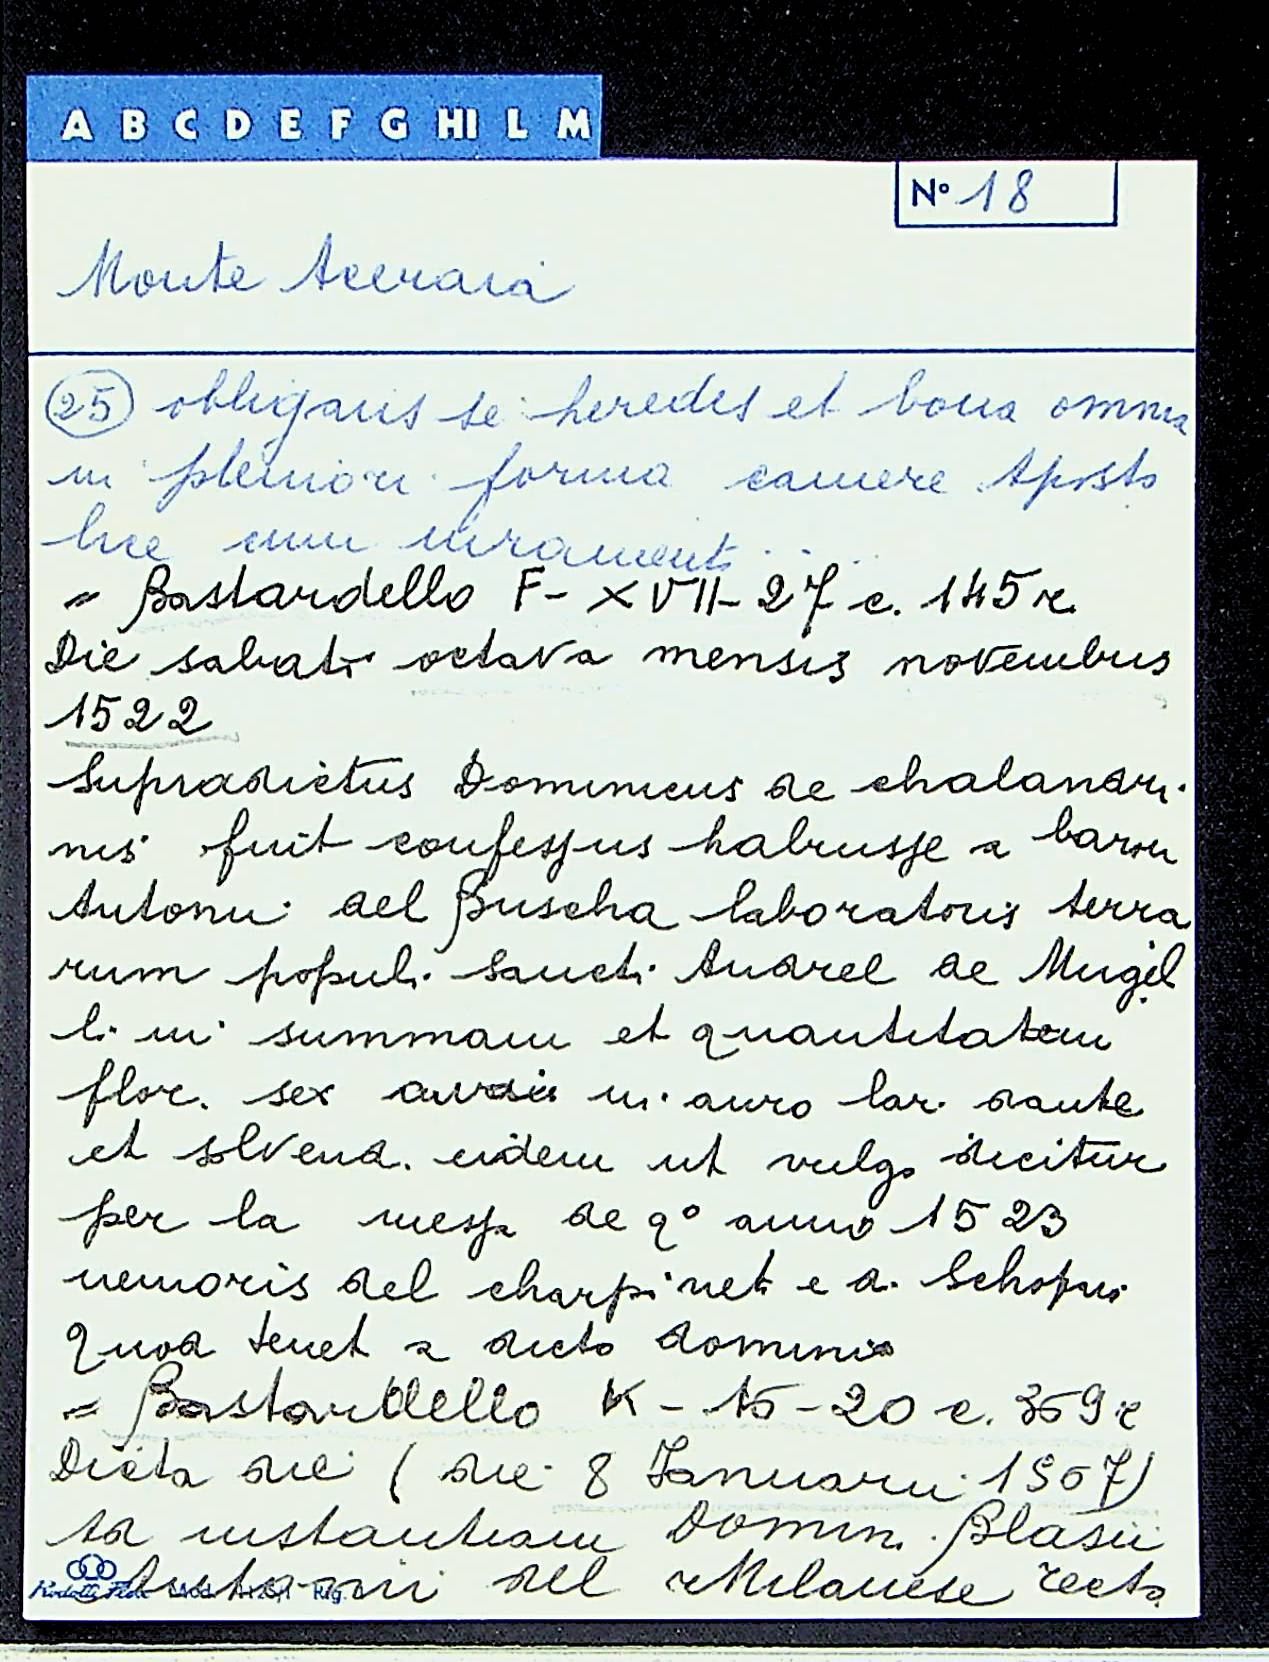 A B C D E F G HI L M
N° 18
Monte Aceraia
25 obligans se heredes et bona omnia
in pleniori forma camere Aposto
lice cum iurament...
= Bastardello F-XVII-27 c. 145 r.
Die sabati octava mensis novembris
1522
Supradictus Dominicus de chalandri
nis fuit confessus habuisse a
Antonii del Buscha laboratoris terra
rum populi Sancti Andree de Mugel
li in summam et quantitatem
flor. sex auri in auro lar.
et solvend. eidem ut vulgo dicitur
per la de q° anno 1523
nemoris del charpineti e d.
Quod tenet a dicto domini
= Bastardello K-15-20 c. 369 r
Dicta die (die 8 Januarii 1507)
Ad instantiam Domin. Blasii
Antonii del Milanese